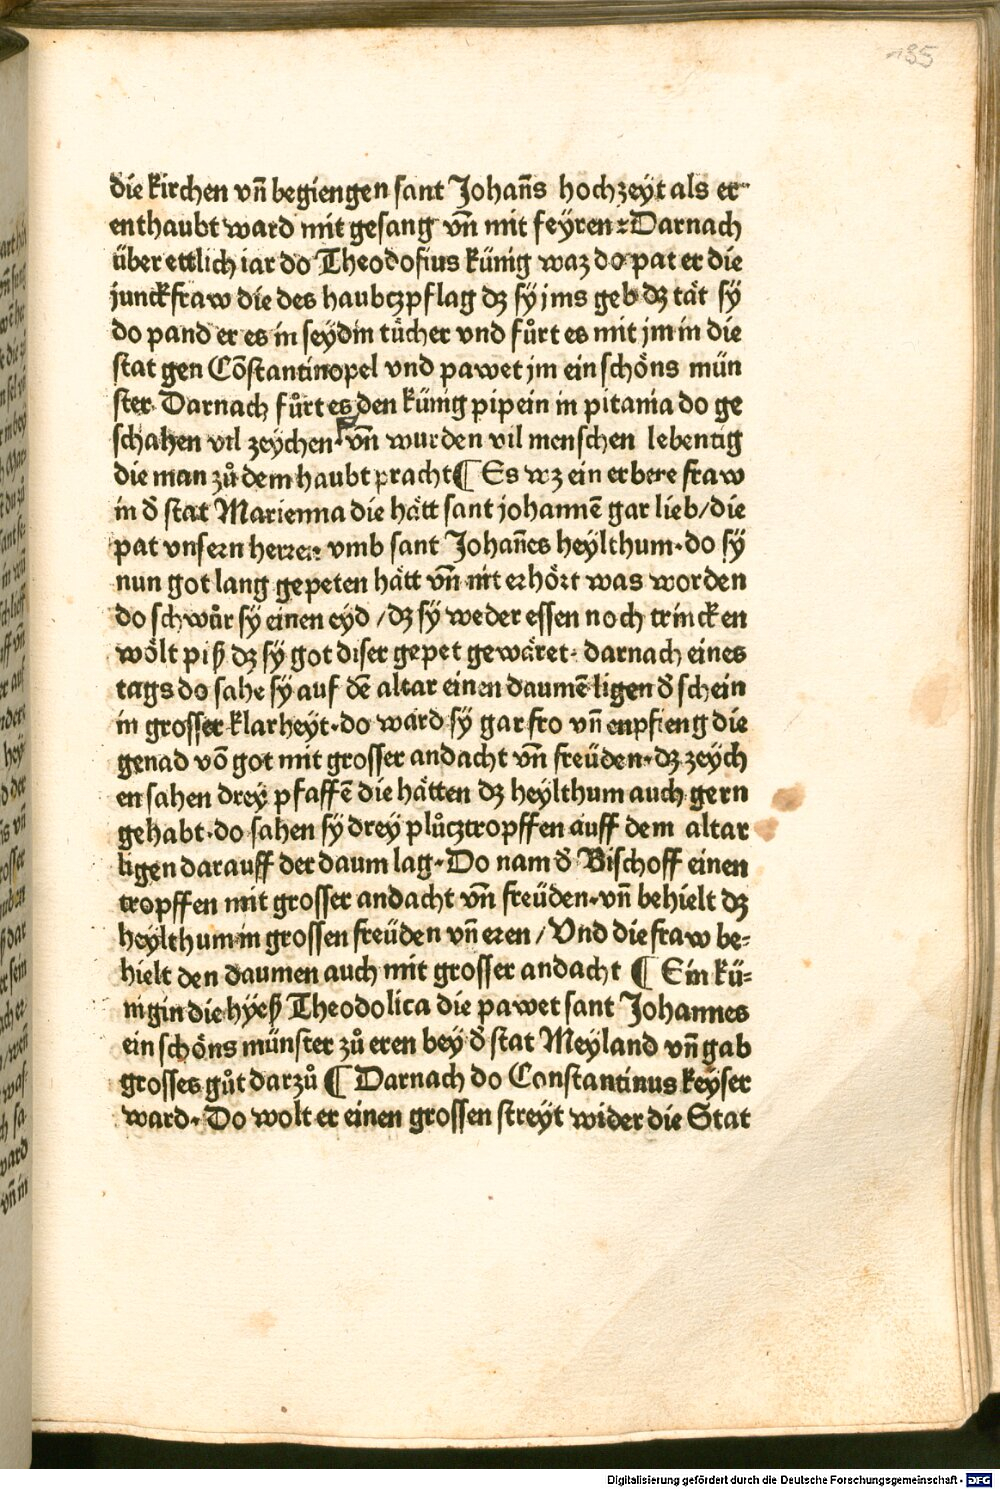 135
die kirchen vn̄ begiengen sant Johan̄s hochzeyt als er
enthaubt ward mit gesang vn̄ mit feÿren ⁊ Darnach
über ettlich iar do Theodosius künig waz do pat er die
junckfraw die des haubtzpflag dz sÿ jms geb dz tät sÿ
do pand er es in seÿdin tücher vnd fůrt es mit jm in die
stat gen Cōstantinopel vnd pawet jm ein schöns mün
ster. Darnach fůrt es den künig pipein in pitania do ge
schahen vil zeÿchen. vn̄ wurden vil menschen lebentig
die man zů dem haubt pracht ¶ Es wz ein erbere fraw
in d̄ stat Marienna die hätt sant johannē gar lieb/die
pat vnsern herren vmb sant Johan̄es heÿlthum. do sÿ
nun got lang gepeten hätt vn̄ nit erhört was worden
do schwůr sÿ einen eÿd /dz sÿ weder essen noch trincken
wölt piß dz sÿ got diser gepet gewäret. darnach eines
tags do sahe sÿ auf dē altar einen daumē ligen d̄ schein
in grosser klarheÿt. do ward sÿ gar fro vn̄ enpfieng die
genad vō got mit grosser andacht vn̄ freüden. dz zeÿch
en sahen dreÿ pfaffē die hätten dz heÿlthum auch gern
gehabt. do sahen sÿ dreÿ plůtztropffen auff dem altar
ligen darauff der daum lag. Do nam d̄ Bischoff einen
tropffen mit grosser andacht vn̄ freüden. vn̄ behielt dz
heÿlthum in grossen freüden vn̄ eren / Vnd die fraw be⸗
hielt den daumen auch mit grosser andacht ¶ Ein kü⸗
nigin die hÿeß Theodolica die pawet sant Johannes
ein schöns münster zů eren beÿ d̄ stat Meÿland vn̄ gab
grosses gůt darzů ¶ Darnach do Constantinus keÿser
ward. Do wolt er einen grossen streÿt wider die Stat
Digitalisierung gefördert durch die Deutsche Forschungsgemeinschaft - DFG